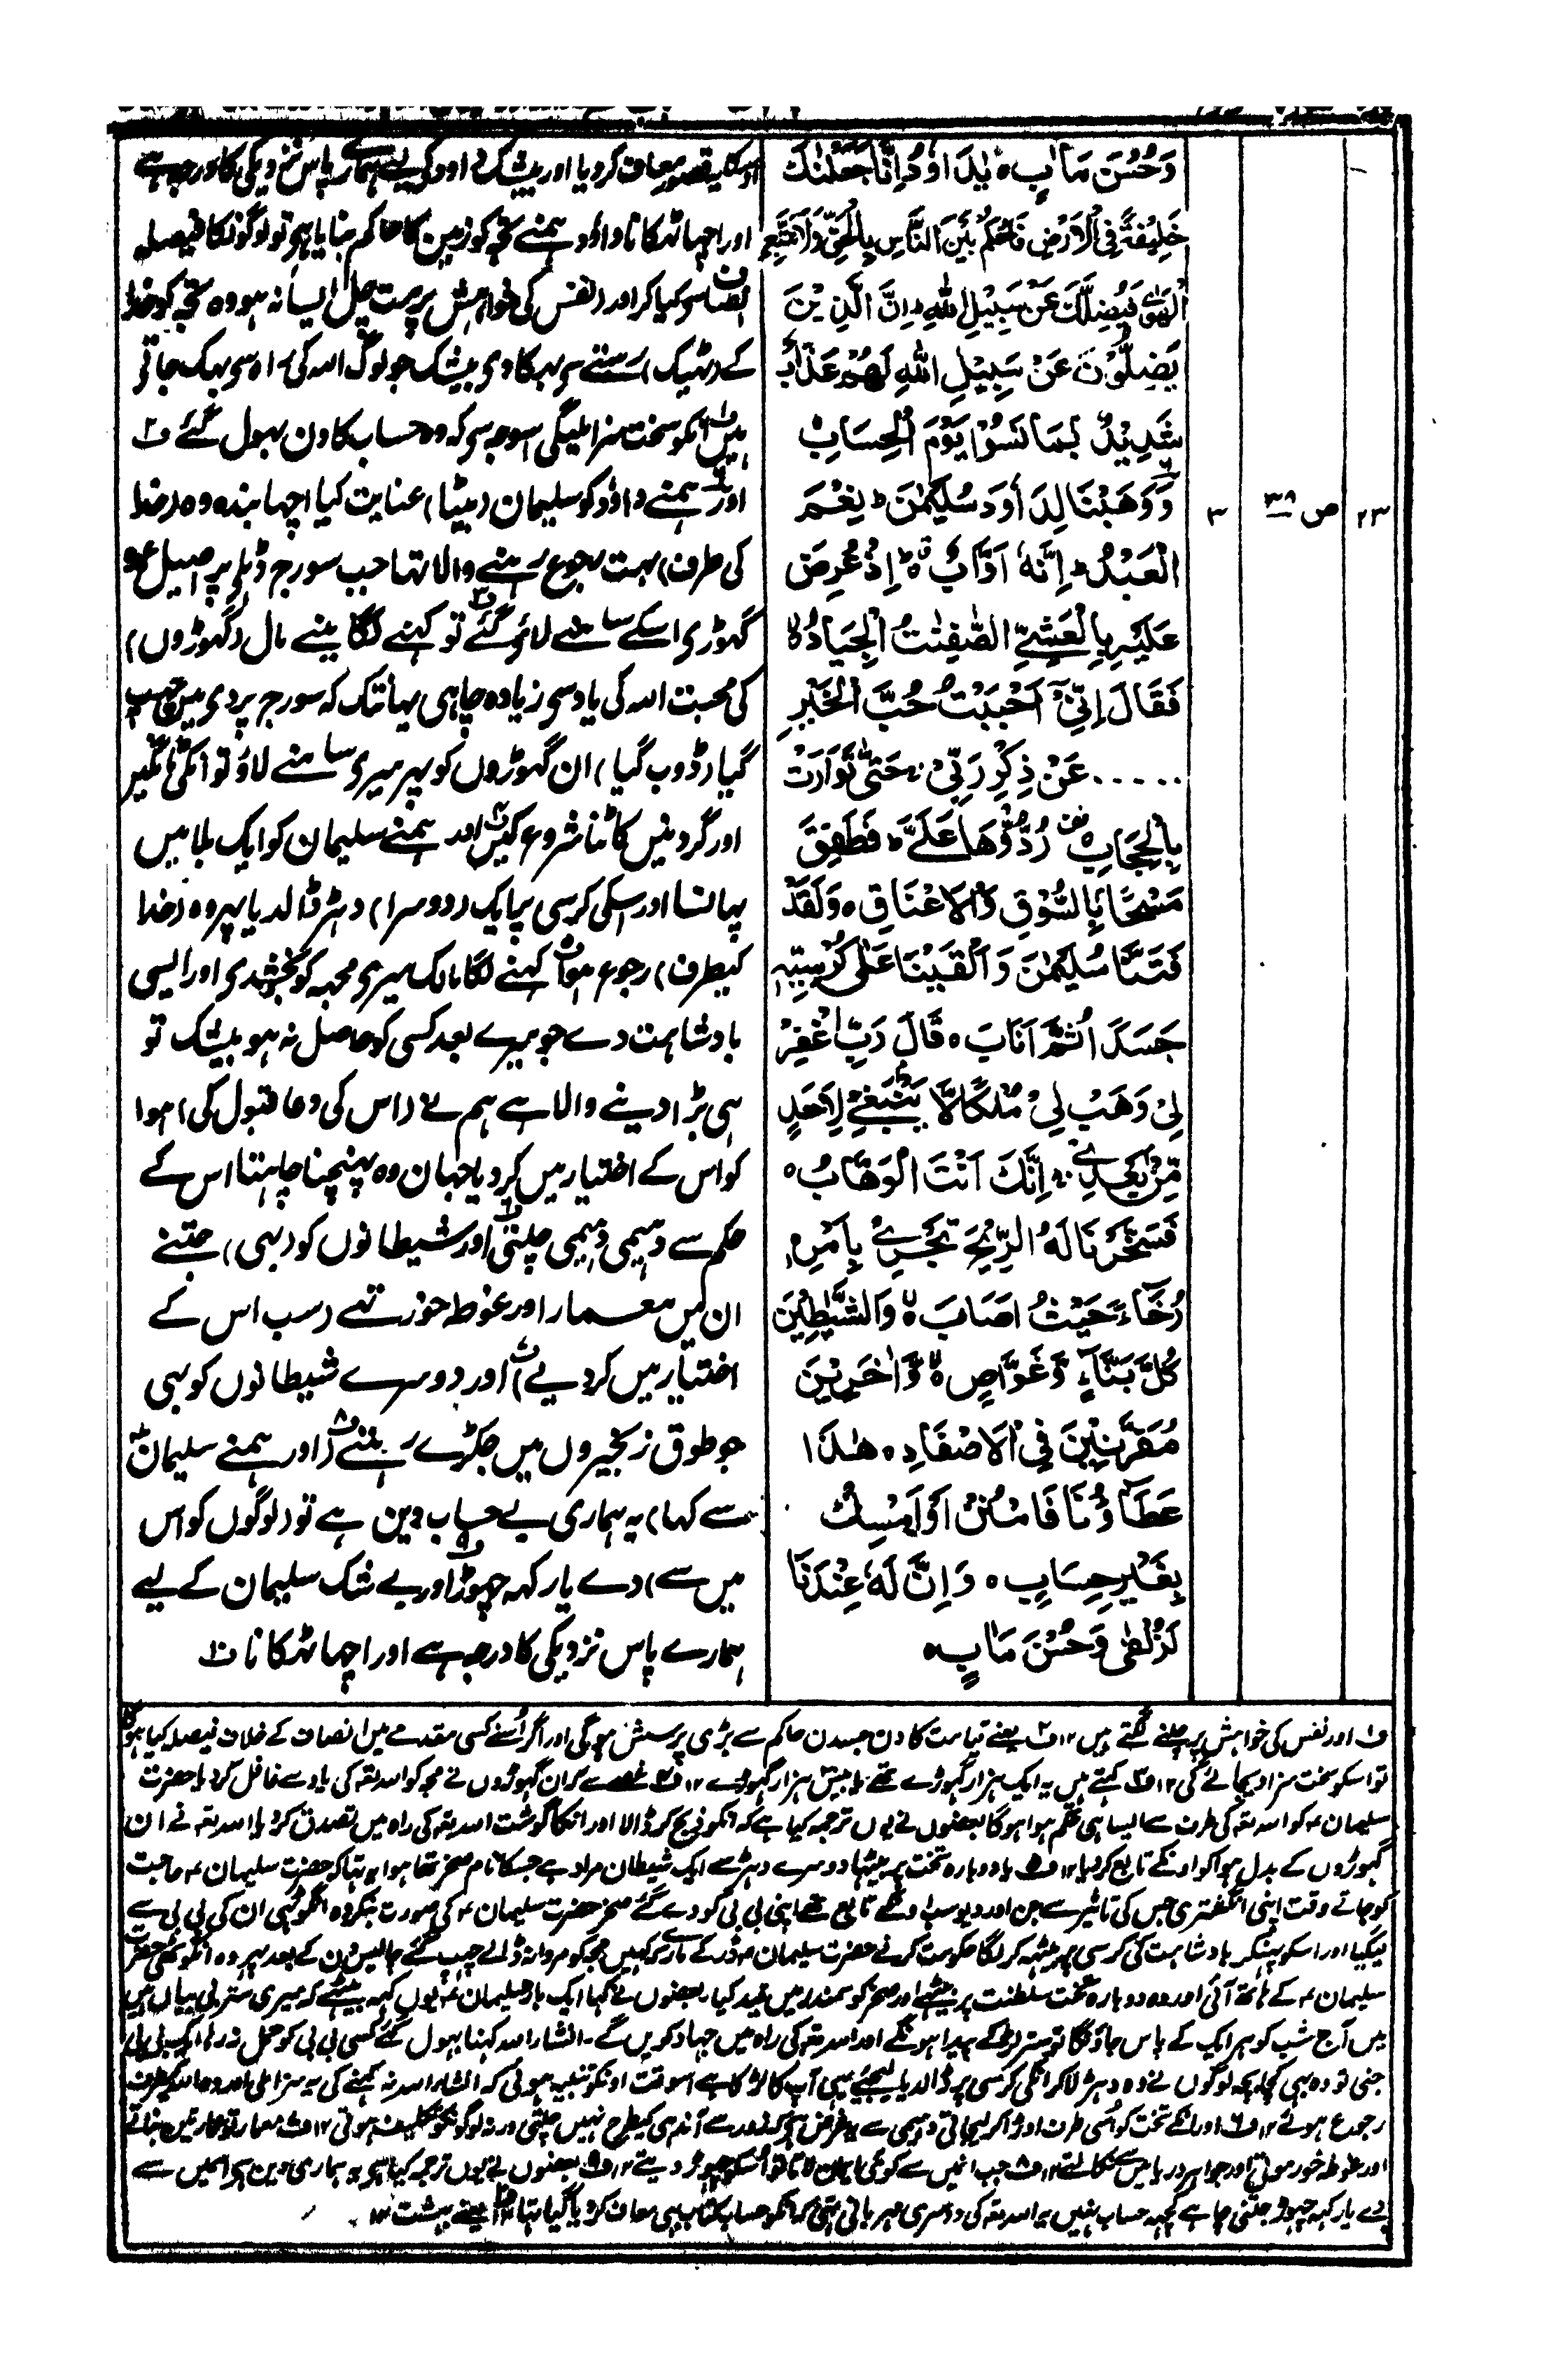 وَحُسْنَ مَاٰبٍ ٥ يٰدَاوٗدُ اِنَّا جَعَلْنٰكَ
خَلِيْفَةً فِي الْاَرْضِ فَاحْكُمْ بَيْنَ النَّاسِ بِالْحَقِّ وَلَا تَتَّبِعِ
الْهَوٰى فَيُضِلَّكَ عَنْ سَبِيْلِ اللّٰهِ ؕ اِنَّ الَّذِيْنَ
يَضِلُّوْنَ عَنْ سَبِيْلِ اللّٰهِ لَهُمْ عَذَابٌ
شَدِيْدٌۢ بِمَا نَسُوْا يَوْمَ الْحِسَابِ ٥
وَوَهَبْنَا لِدَاوٗدَ سُلَيْمٰنَ ؕ نِعْمَ
الْعَبْدُ ؕ اِنَّهٗۤ اَوَّابٌ ٥ اِذْ عُرِضَ
عَلَيْهِ بِالْعَشِيِّ الصّٰفِنٰتُ الْجِيَادُ ٥
فَقَالَ اِنِّيْۤ اَحْبَبْتُ حُبَّ الْخَيْرِ
..... عَنْ ذِكْرِ رَبِّيْ ۚ حَتّٰى تَوَارَتْ
بِالْحِجَابِ ٥ رُدُّوْهَا عَلَيَّ ؕ فَطَفِقَ
مَسْحًۢا بِالسُّوْقِ وَالْاَعْنَاقِ ٥ وَلَقَدْ
فَتَنَّا سُلَيْمٰنَ وَاَلْقَيْنَا عَلٰى كُرْسِيِّهٖ
جَسَدًا ثُمَّ اَنَابَ ٥ قَالَ رَبِّ اغْفِرْ
لِيْ وَهَبْ لِيْ مُلْكًا لَّا يَنْۢبَغِيْ لِاَحَدٍ
مِّنْۢ بَعْدِيْ ۚ اِنَّكَ اَنْتَ الْوَهَّابُ ٥
فَسَخَّرْنَا لَهُ الرِّيْحَ تَجْرِيْ بِاَمْرِهٖ
رُخَآءً حَيْثُ اَصَابَ ٥ وَالشَّيٰطِيْنَ
كُلَّ بَنَّآءٍ وَّغَوَّاصٍ ٥ وَّاٰخَرِيْنَ
مُقَرَّنِيْنَ فِي الْاَصْفَادِ ٥ هٰذَا
عَطَآؤُنَا فَامْنُنْ اَوْ اَمْسِكْ
بِغَيْرِ حِسَابٍ ٥ وَاِنَّ لَهٗ عِنْدَنَا
لَزُلْفٰى وَحُسْنَ مَاٰبٍ ٥
٢٣ ص ٣٨ ٣
اوسکا یہ قصور معاف کردیا اور بیشک داود کے لیے ہمارے پاس نزدیکی کا درجہ ہے
اور اچھا ٹھکانا داؤد ہمنے تجھ کو زمین کا حاکم بنایا ہے تو لوگوں کا فیصلہ
انصاف سے کیا کر اور (نفس کی) خواہش پر مت چل ایسا نہ ہو وہ تجھ کو خدا
کے (ٹھیک) رستے سے بہکا دے بیشک جو لوگ اللہ کی راہ سے بہک جاتے
ہیں انکو سخت سزا ملیگی اسوجہ سے کہ وہ حساب کا دن بہول گئے ف۲
اور ہمنے داؤد کو سلیمان (بیٹا) عنایت کیا اچھا بندہ وہ (خدا
کی طرف) بہت رجوع رہنے والا تہا جب سورج ڈھلے پر اصیل عمدہ
گہوڑے اسکے سامنے لائے گئے ف۳ تو کہنے لگا مینے مال (گہوڑوں)
کی محبت اللہ کی یاد سے زیادہ چاہی یہانتک کہ سورج پردے میں چھپ
گیا (ڈوب گیا) ان گہوڑوں کو پہر میرے سامنے لاؤ تو انکی ٹانگیں
اور گردنیں کاٹنا شروع کیں ف۴ اور ہمنے سلیمان کو ایک بلا میں
پہانسا اور اسکی کرسی پر ایک (دوسرا) دہڑ ڈالدیا پہر وہ (خدا
کیطرف) رجوع ہوا ف۵ کہنے لگا مالک میرے مجہہ کو بخشدے اور ایسی
بادشاہت دے جو میرے بعد کسی کو حاصل نہ ہو بیشک تو
ہی بڑا دینے والا ہے ہم نے (اس کی دعا قبول کی) ہوا
کو اس کے اختیار میں کردیا جہان وہ پہنچنا چاہتا اس کے
حکم سے دہیمی دہیمی چلتی ف۶ اور شیطانوں کو (بہی) جتنے
ان میں معمار اور غوطہ خور تہے (سب اس کے
اختیار میں کردیے ف۷) اور دوسرے شیطانوں کو بہی
جو طوق زنجیروں میں جکڑے رہتے ف۸ (اور ہمنے سلیمان
سے کہا) یہ ہماری بے حساب دین ہے تو (لوگوں کو اس
میں سے) دے یا رکہہ چہوڑ ف۹ اور بے شک سلیمان کے لیے
ہمارے پاس نزدیکی کا درجہ ہے اور اچہا ٹہکانا ف۱۰
ف۱ اور نفس کی خواہش پر چلنے لگتے ہیں ۱۲ ف۲ یعنے قیامت کا دن جسدن حاکم سے بڑی پرسش ہوگی اور اگر اُسنے کسی مقدمے میں انصاف کے خلاف فیصلہ کیا ہوگا
تو اسکو سخت سزا دیجائے گی ۱۲ ف۳ کہتے ہیں یہ ایک ہزار گہوڑے تھے یا بیس ہزار گہوڑے ۱۲ ف۴ غصے سے کہ ان گہوڑوں نے مجہ کو اللہ تعہ کی یاد سے غافل کردیا حضرت
سلیمان ۴ کو اللہ تعہ کی طرف سے ایسا ہی حکم ہوا ہوگا بعضوں نے یوں ترجمہ کیا ہے کہ انکو ذبح کر ڈالا اور انکا گوشت اللہ تعہ کی راہ میں تصدق کردیا اللہ تعہ نے ان
گہوڑوں کے بدل ہوا کو اونکے تابع کردیا ۱۲ ف۵ یا دوبارہ تخت پر بیٹہا دوسرے دہڑ سے ایک شیطان مراد ہے جسکا نام صخر تھا ہوا یہ تہا کہ حضرت سلیمان ۴ حاجت
کو جاتے وقت اپنی انگشتری جس کی تاثیر سے جن اور دیو سب اونکے تابع تھے اپنی بی بی کو دے گئے صخر حضرت سلیمان ۴ کی صورت بنکر وہ انگوٹہی ان کی بی بی سے
لیگیا اور اسکو پہنکر بادشاہت کی کرسی پر بیٹہہ کر لگا حکومت کرنے حضرت سلیمان ۴ ڈر کے مارے کہ کہیں مجہ کو مروا نہ ڈالے چہپ گئے چالیس دن کے بعد پہر وہ انگوٹہی حضرت
سلیمان ۴ کے ہاتھ آئی اور وہ دوبارہ تخت سلطنت پر بیٹہے اور صخر کو سمندر میں قید کیا بعضوں نے کہا ایک بار سلیمان ۴ یوں کہہ بیٹہے کہ میری ستر بی بیاں ہیں
میں آج شب کو ہر ایک کے پاس جاؤنگا تو ستر لڑکے پیدا ہونگے اور اللہ تعہ کی راہ میں جہاد کریں گے۔ انشاء اللہ کہنا بہول گئے کسی بی بی کو حمل نہ رہا ایک بی بی
جنی تو وہ بہی کچا بچہ لوگوں نے وہ دہڑ لاکر انکی کرسی پر ڈالدیا لیجئے یہی آپ کا لڑکا ہے اسوقت اونکو تنبیہ ہوئی کہ انشاء اللہ نہ کہنے کی یہ سزا ملی اور وہ خدا کیطرف
رجوع ہوئے ۱۲ ف۶ اور انکے تخت کو اُسی طرف اوڑا کر لیجاتی دہیمی سے یہ غرض ہے کہ زور سے آندہی کیطرح نہیں چلتی ورنہ لوگونکو تکلیف ہوتی ۱۲ ف۷ معمار تو عمارتیں بناتے
اور غوطہ خور موتی اور جواہر دریا میں سے نکالتے ۱۲ ف۸ جب انمیں سے کوئی ایمان لاتا تو اُسکو چہوڑ دیتے ۱۲ ف۹ بعضوں نے یوں ترجمہ کیا ہے یہ ہماری دین ہے اسمیں سے
دے یا رکہہ چہوڑ جتنی چاہے کچہہ حساب نہیں یہ اللہ تعہ کی دوسری مہربانی تہی کہ انکو حساب کتاب بہی معاف کردیا گیا تہا ۱۲ ف۱۰ یعنے بہشت ۱۲